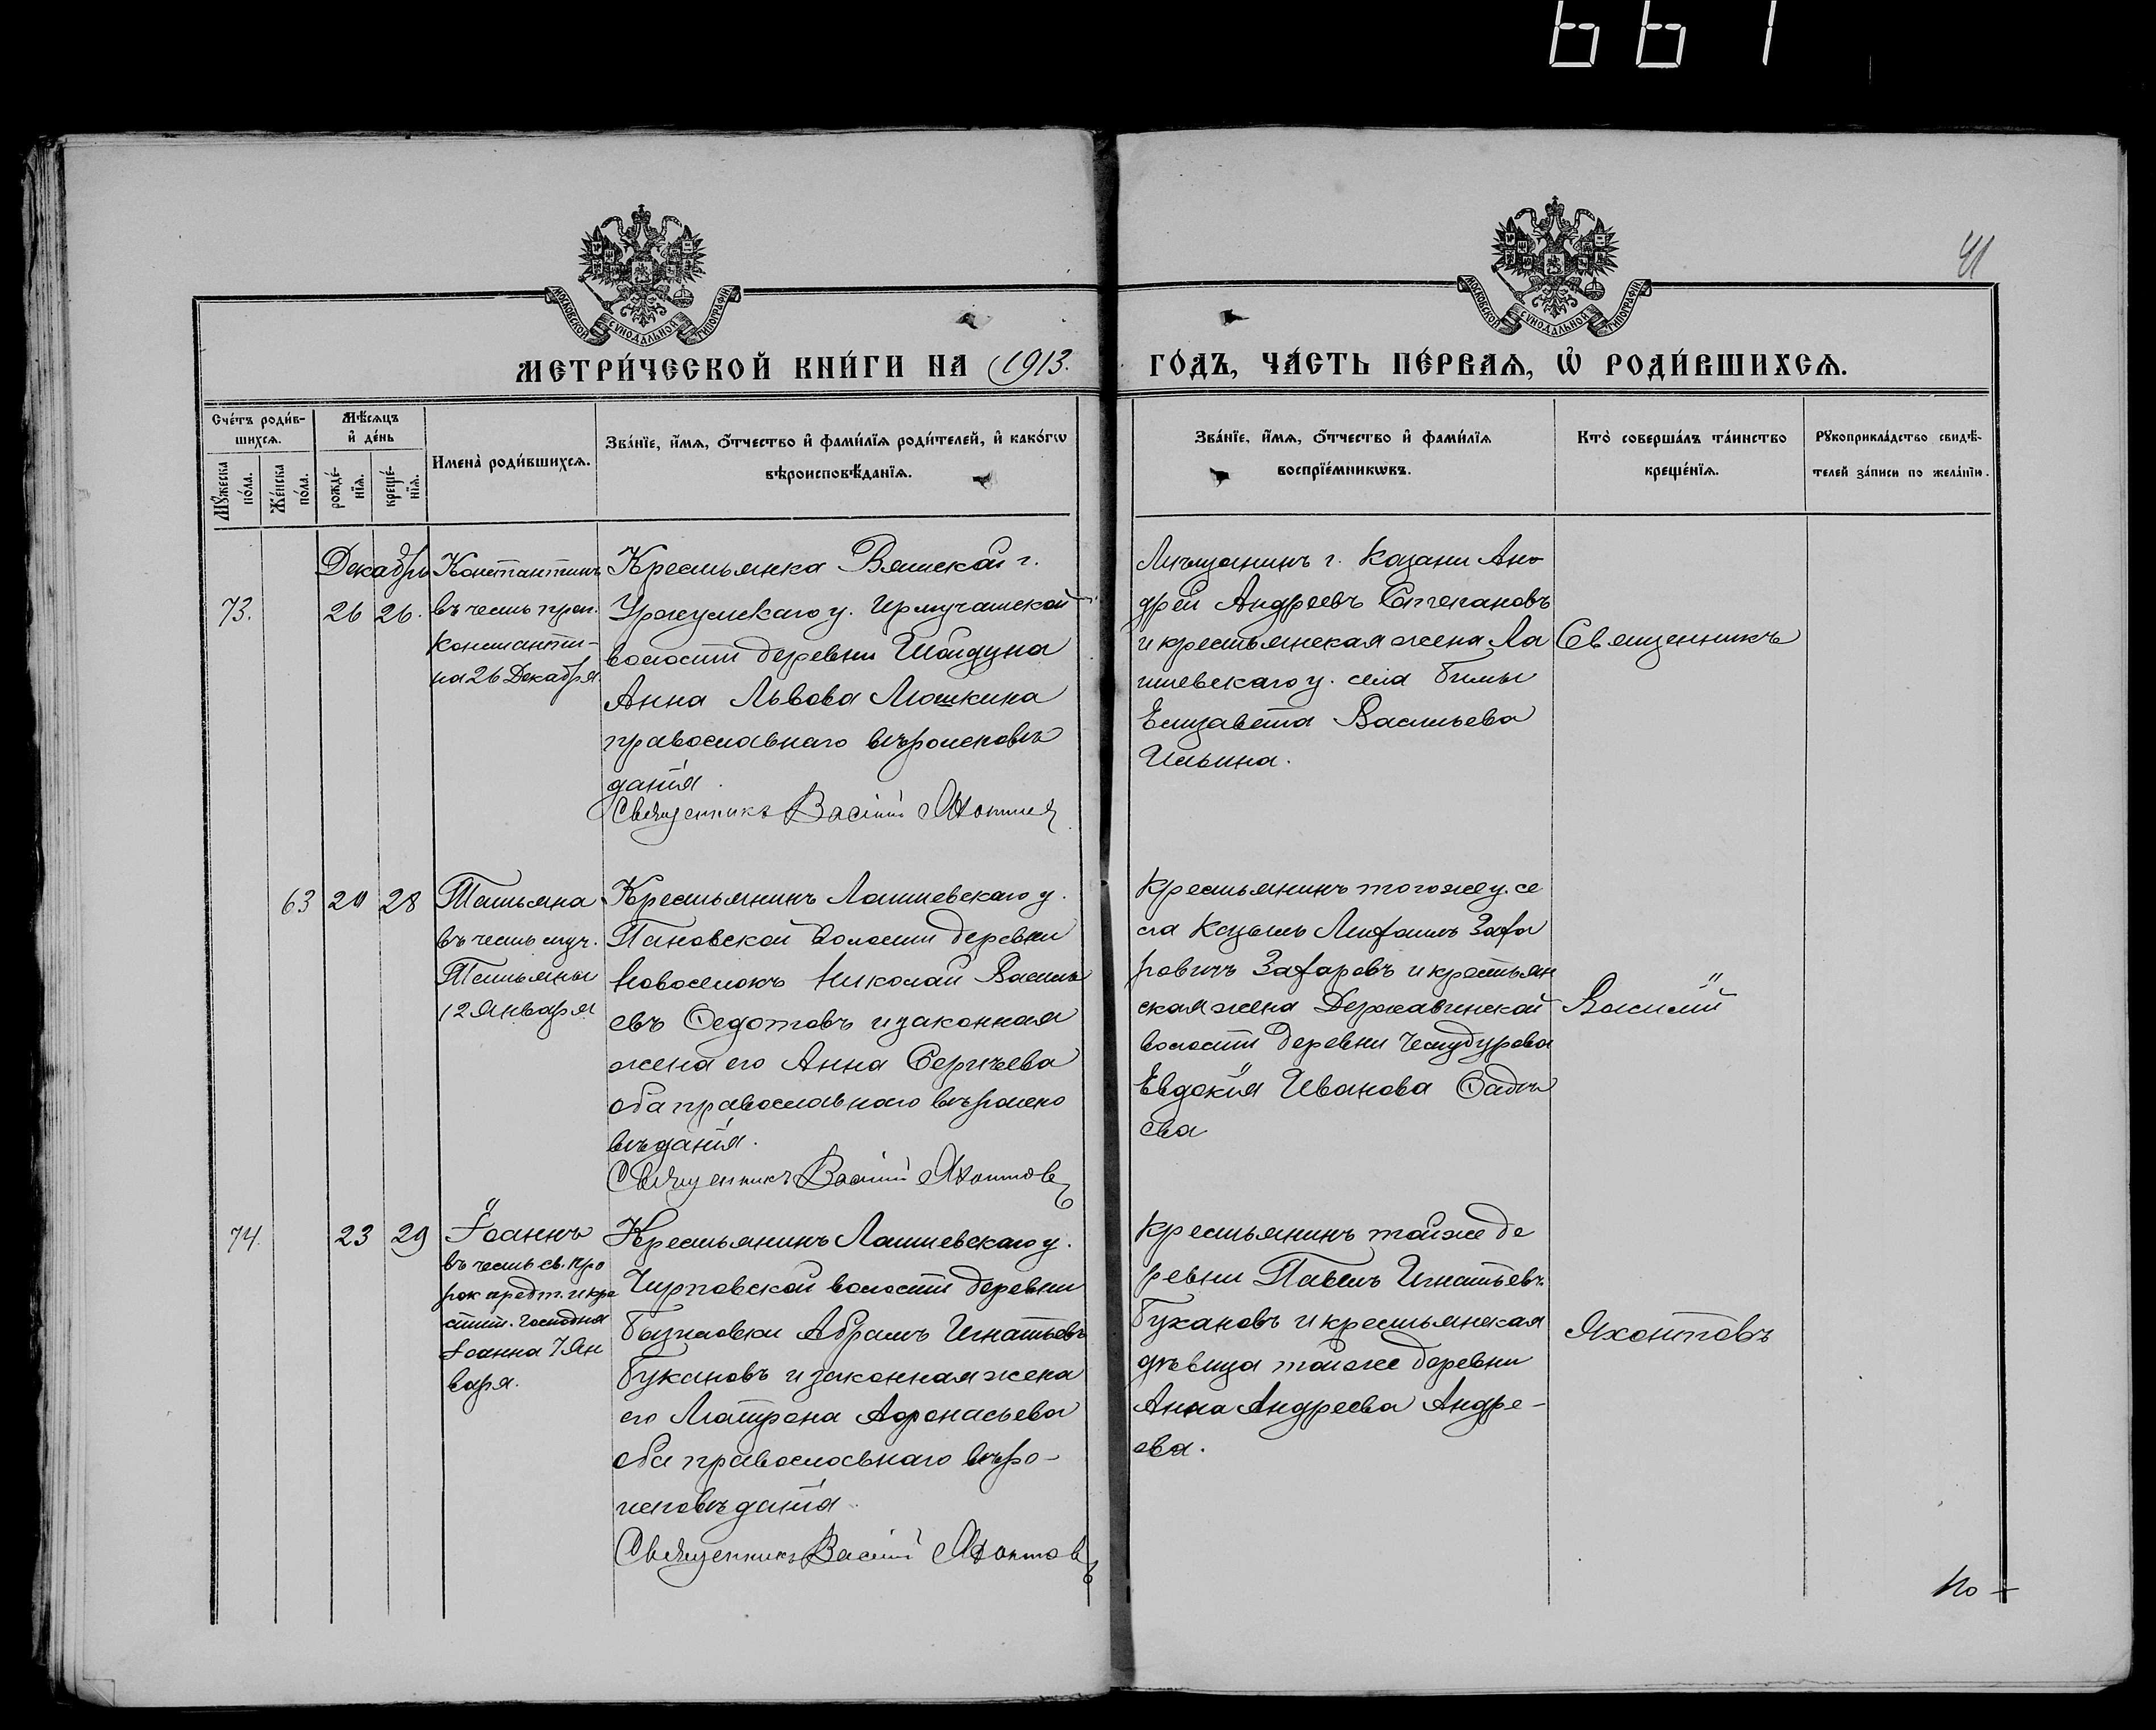 661
41
МОСКОВСКОЙ СѴНОДАЛЬНОЙ ТИПОГРАФІИ
МОСКОВСКОЙ СѴНОДАЛЬНОЙ ТИПОГРАФІИ
МЕТРИ́ЧЕСКОЙ КНИ́ГИ НА 1913. ГО́ДЪ, ЧА́СТЬ ПЕ́РВАѦ, Ѽ РОДИ́ВШИХСѦ.
Сче́тъ роди́в-
шихсѧ.
Мꙋ́жеска по́ла.
Же́нска по́ла.
Мѣ́сѧцъ
и҆ де́нь
рожде́-
нїѧ.
креще́-
нїѧ.
И҆мена̀ роди́вшихсѧ.
Зва́нїе, и҆́мѧ, ѻ҆́тчество и҆ фами́лїѧ роди́телей, и҆ како́гѡ
вѣроисповѣ́данїѧ.
Зва́нїе, и҆́мѧ, ѻ҆́тчество и҆ фами́лїѧ
воспрїе́мникѡвъ.
Кто̀ соверша́лъ та́инство
креще́нїѧ.
Рꙋкоприкла́дство свидѣ́-
телей за́писи по жела́нїю.
Декабрь
73.
26 26.
Константинъ
въ честь преп.
Константи-
на 26 Декабря
Крестьянка Вятской г.
Уржумскаго у. Ирмучашской
волости деревни Шойдума
Анна Львова Люшкина
православнаго вѣроисповѣ
данія.
Священникъ Василій Яхонтовъ
Мѣщанинъ г. Казани Ан
дрей Андреевъ Степановъ
и крестьянская жена Ла
ишевскаго у. села Бимы
Елизавета Васильева
Ильина.
Священникъ
63 20 28
Татьяна
въ честь муч.
Татьяны
12 Января
Крестьянинъ Лаишевскаго у.
Пановской волости деревни
Новоселокъ Николай Василь
евъ Ѳедотовъ и законная
жена его Анна Сергѣева
оба православнаго вѣроиспо
вѣданія.
Священникъ Василій Яхонтовъ
Крестьянинъ того же у. се
ла Казыль
ровичъ Захаровъ и крестьян
ская жена Державинской
волости деревни
Евдокія Иванова Ѳадѣ
ева
Василій
74. 23 29
Іоаннъ
въ честь св. про
рок. предт. и кре
стит. Господня
Іоанна 7 Ян
варя.
Крестьянинъ Лаишевскаго у.
Чирповской волости деревни
Абрамъ Игнатьевъ
Букановъ и законная жена
его Матрона Аѳонасьева
оба православнаго вѣро-
исповѣданія.
Священникъ Василій Яхонтовъ
Крестьянинъ той же де
ревни Павелъ Игнатьевъ
Букановъ и крестьянская
дѣвица той же деревни
Анна Андреева Андре-
ева.
Яхонтовъ
По-